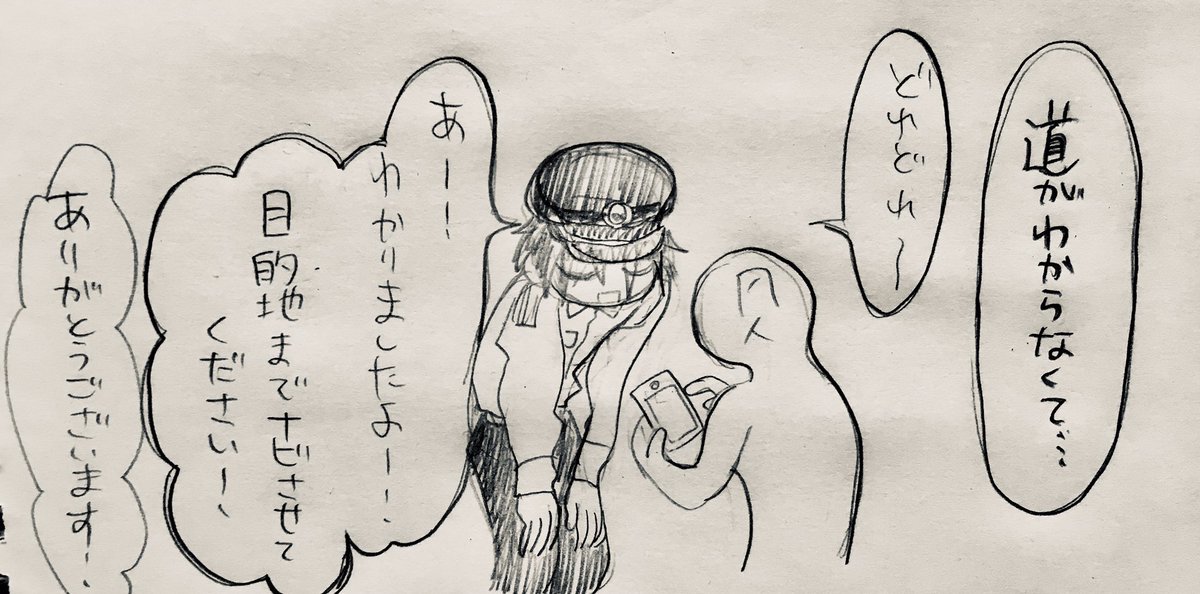 道がわからなくて…
どれどれ〜
あーー!
わかりましたよー、
目的地までナビさせて
ください〜
ありがとうございます〜、